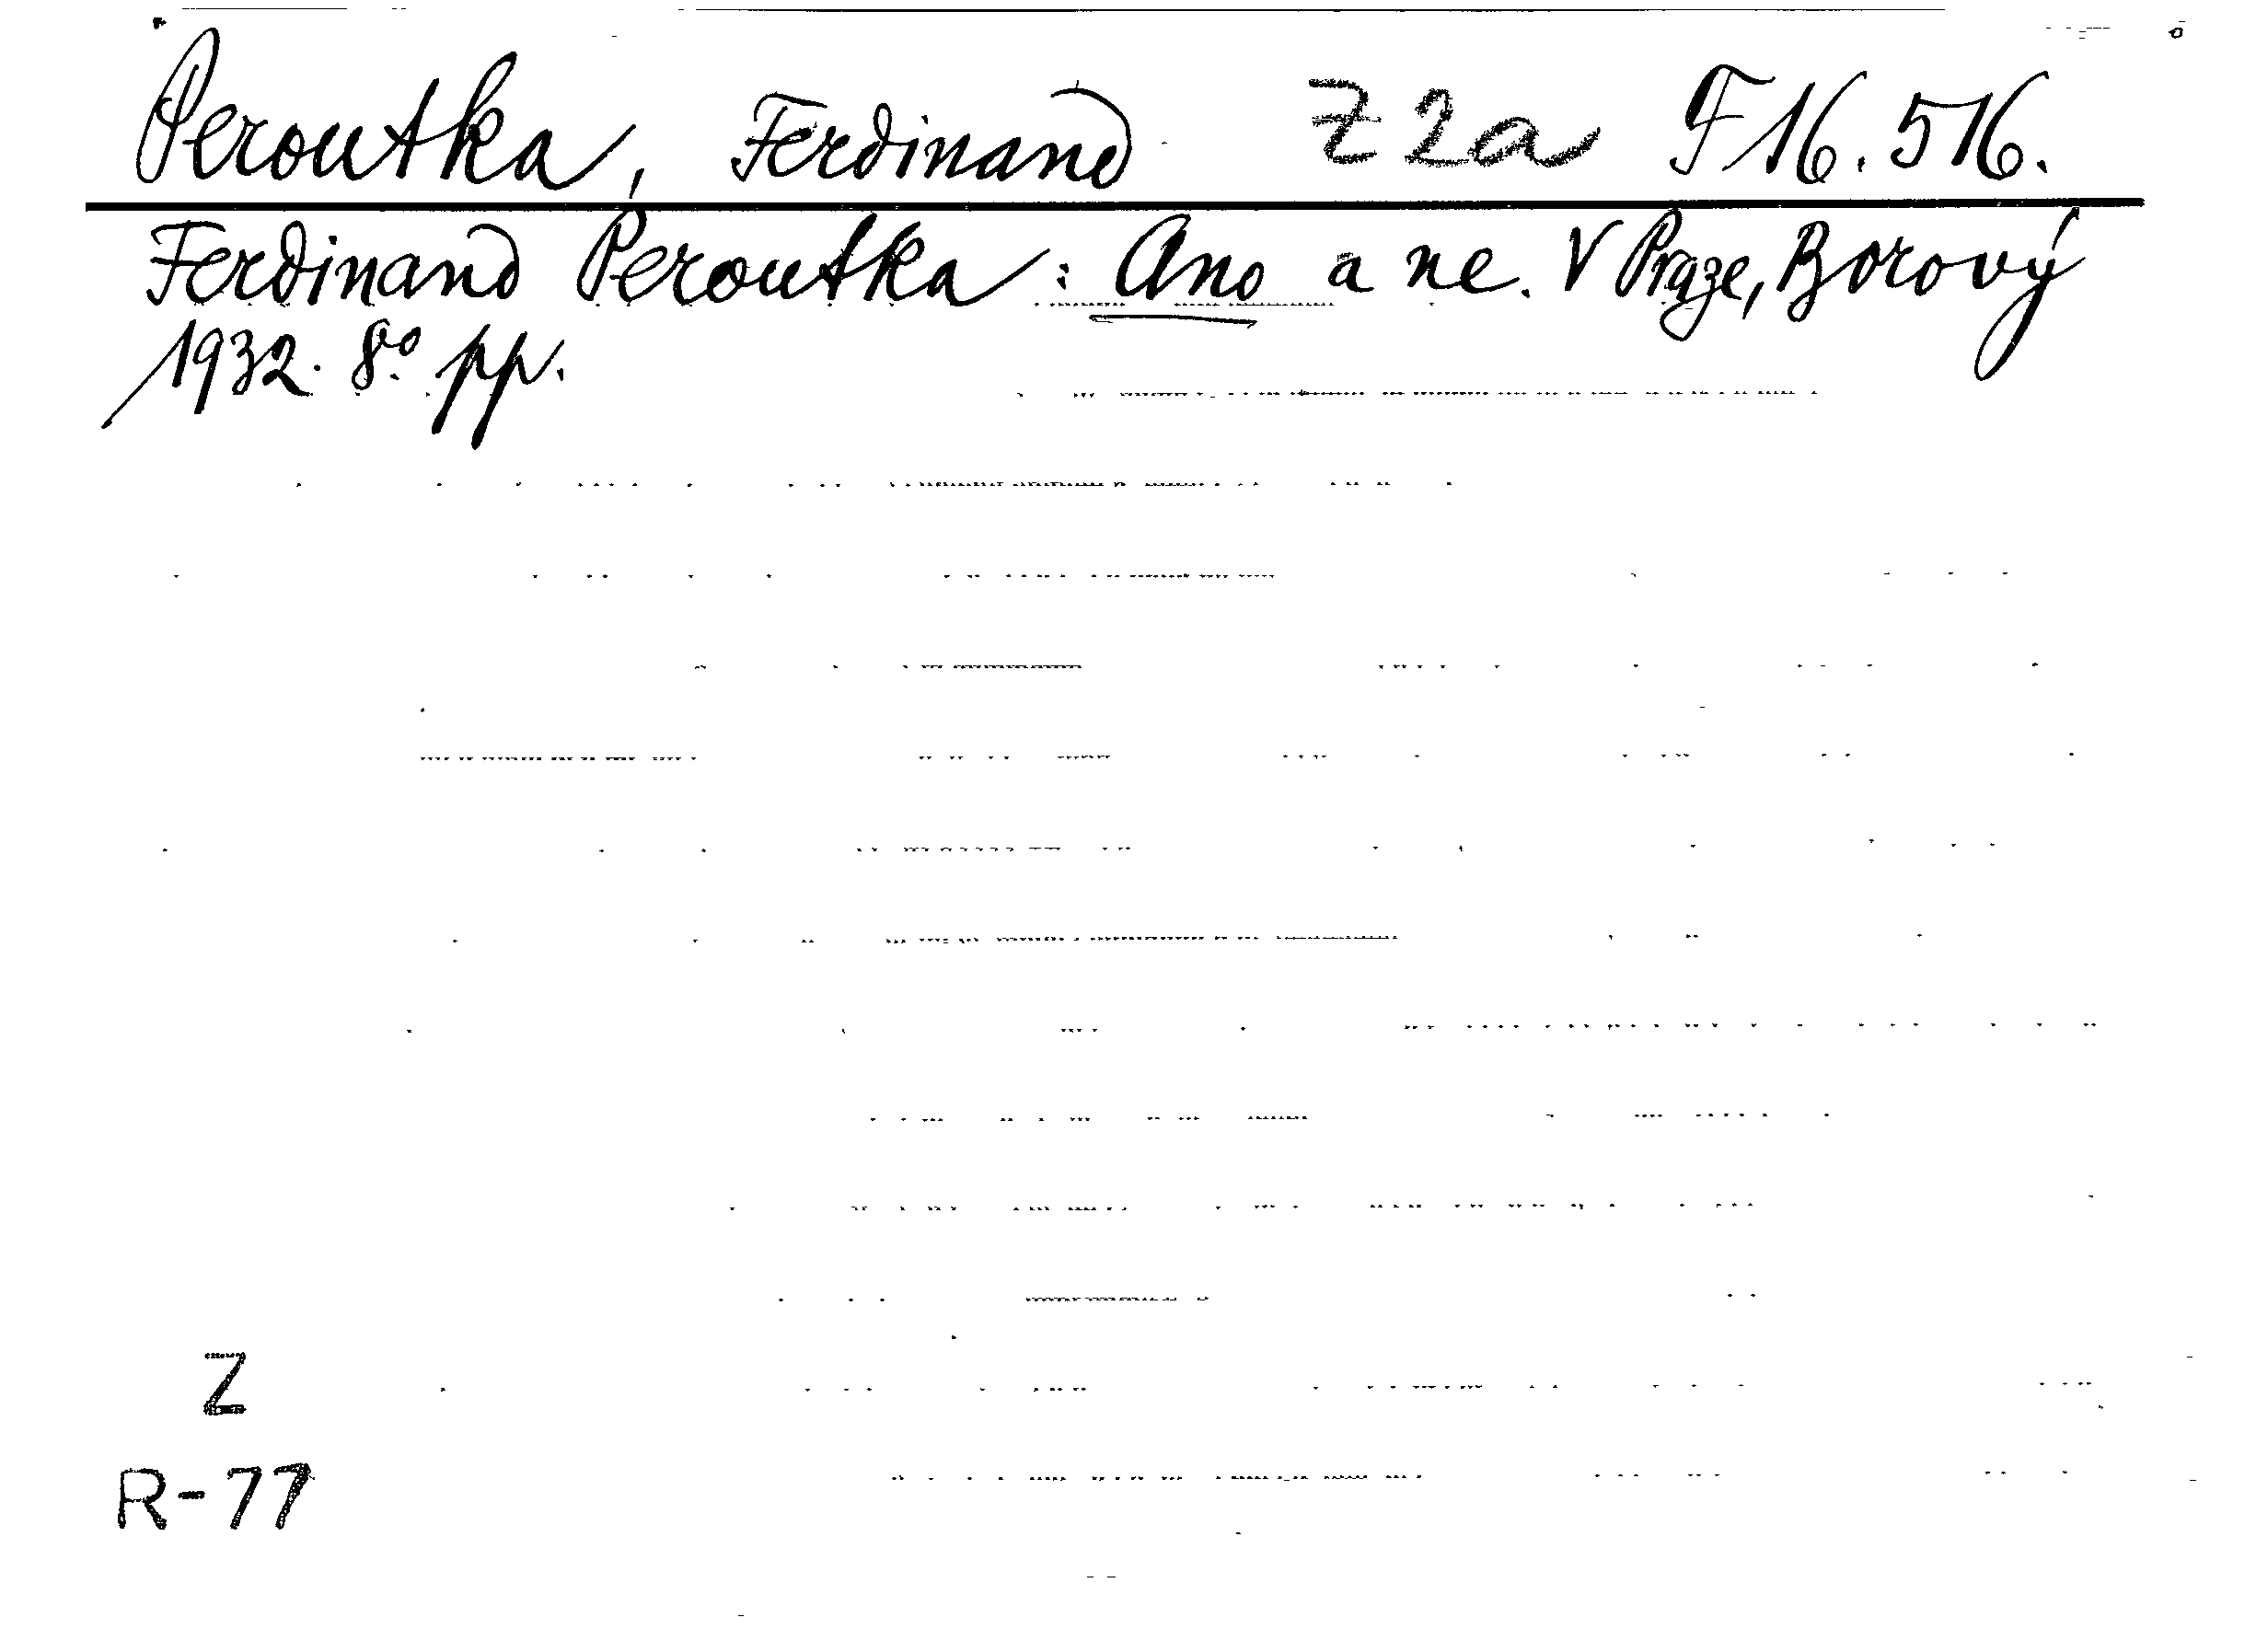 Peroutka, Ferdinand Z2a F16.516.
Ferdinand Peroutka: Ano a ne. V Praze, Borový
1932. 8º. pp.
Z
R-77